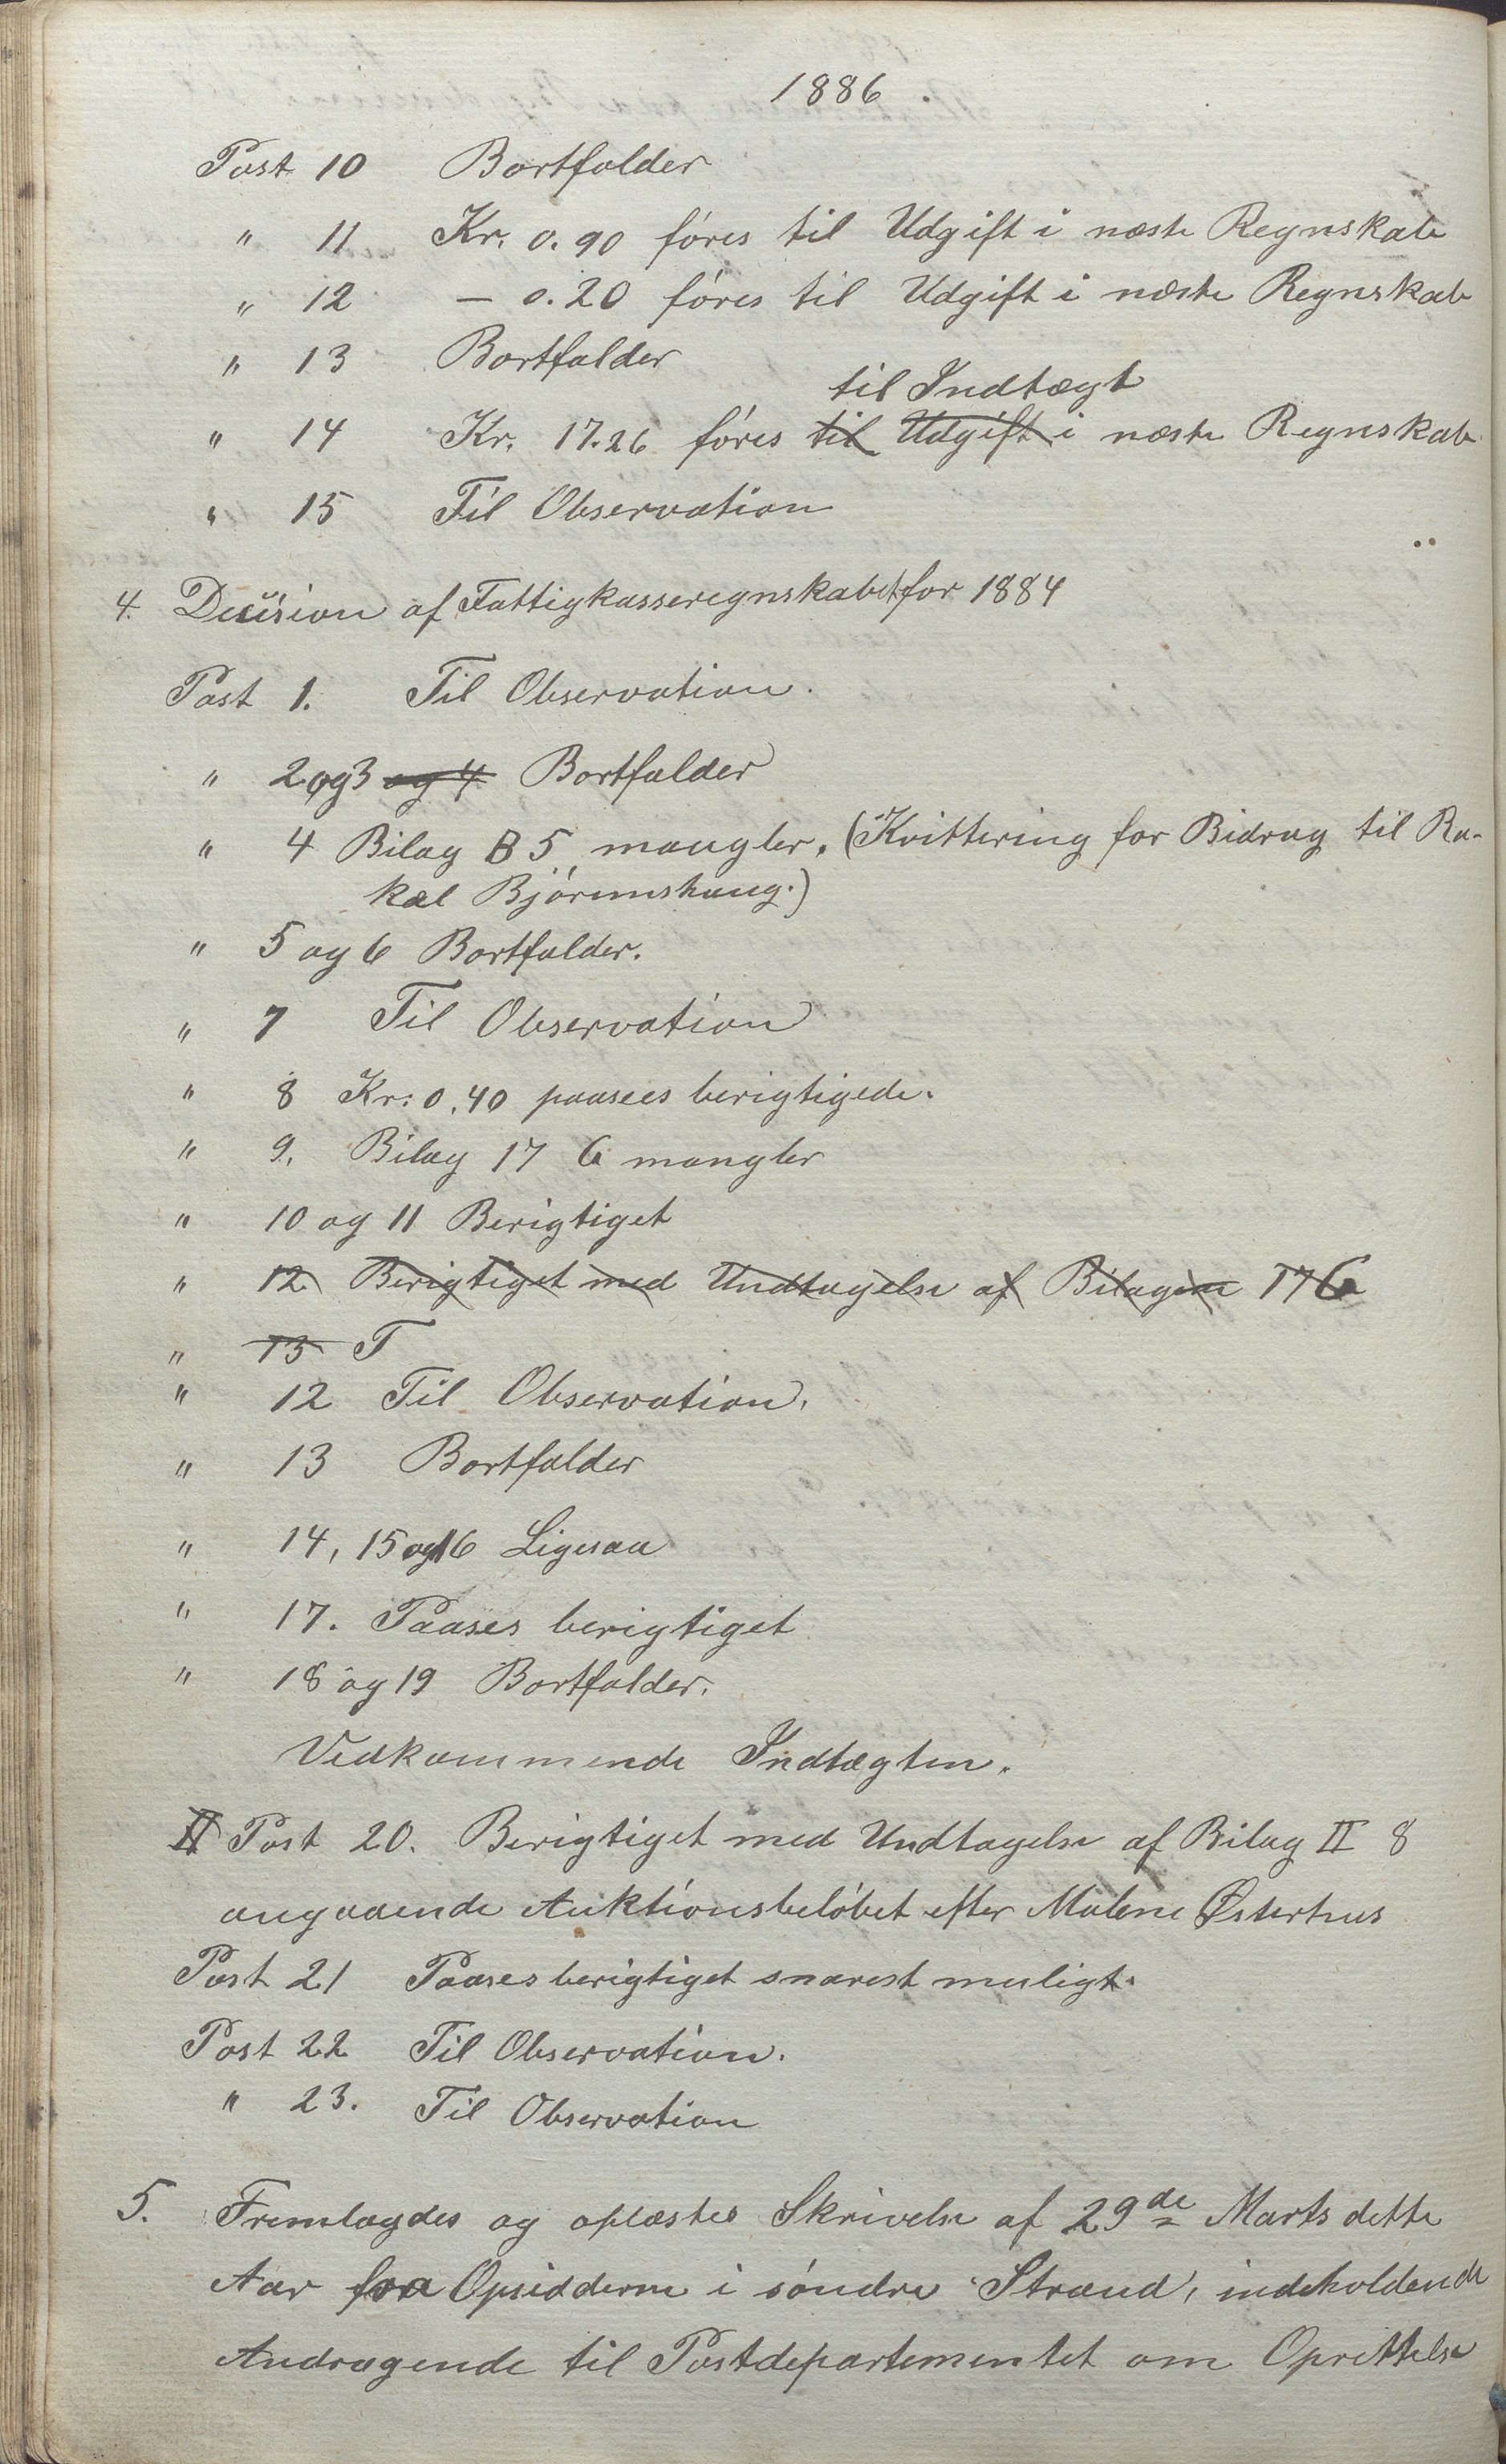 1886
Post 10 Bortfalder
" 11 Kr. 0.90 føres til Udgift i næste Regnskab
" 12 — 0.20 føres til Udgift i næste Regnskab
" 13 Bortfalder
til Indtægt
" 14 Kr. 17.26 føres til Udgift i næste Regnskab
" 15 Til Observation
4. Decision af Fattigkasseregnskabet for 1884
Post 1. Til Observation.
" 2 og 3 og 4 Bortfalder
" 4 Bilag B 5 mangler. (Kvittering for Bidrag til Ra-
kel Bjørnnshaug.)
" 5 og 6 Bortfalder.
" 7 Til Observation
" 8 Kr: 0.40 paasees berigtigede.
" 9. Bilag 17 G mangler
" 10 og 11 Berigtiget
" 12 Berigtiget med Undtagelse af Bilagene 17 G
" 13 T
" 12 Til Observation.
" 13 Bortfalder
" 14, 15 og 16 Ligesaa
" 17. Paases berigtiget
" 18 og 19 Bortfalder.
Vedkommende Indtægten.
II Post 20. Berigtiget med Undtagelse af Bilag II 8
angaaende Auktionsbeløbet efter Malene Østerhus
Post 21 Paases berigtiget snarest muligt.
Post 22 Til Observation.
" 23. Til Observation
5. Fremlagdes og oplæstes Skrivelse af 29de Marts dette
Aar fra Opsidderne i søndre Strand, indeholdende
Andragende til Postdepartementet om Oprettelse